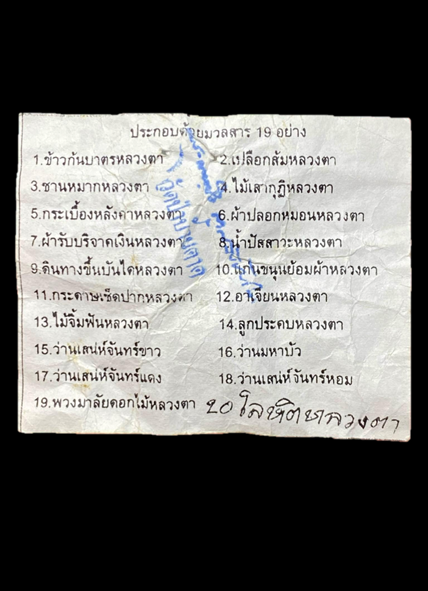 ประกอบด้วยมวลสาร 19 อย่าง
1.ข้าวก้นบาตรหลวงตา 2.เปลือกส้มหลวงตา
3.ชานหมากหลวงตา 4.ไม้เสากุฏิหลวงตา
5.กระเบื้องหลังคาหลวงตา 6.ผ้าปลอกหมอนหลวงตา
7.ผ้ารับบริจาคเงินหลวงตา 8.น้ำปัสสาวะหลวงตา
9.ดินทางขึ้นบันไดหลวงตา 10.แก่นขนุนย้อมผ้าหลวงตา
11.กระดาษเช็ดปากหลวงตา 12.อาเจียนหลวงตา
13.ไม้จิ้มฟันหลวงตา 14.ลูกประคบหลวงตา
15.ว่านเสน่ห์จันทร์ขาว 16.ว่านมหาบัว
17.ว่านเสน่ห์จันทร์แดง 18.ว่านเสน่ห์จันทร์หอม
19.พวงมาลัยดอกไม้หลวงตา 20 โลหิตหลวงตา
วัดป่าบ้านตาด